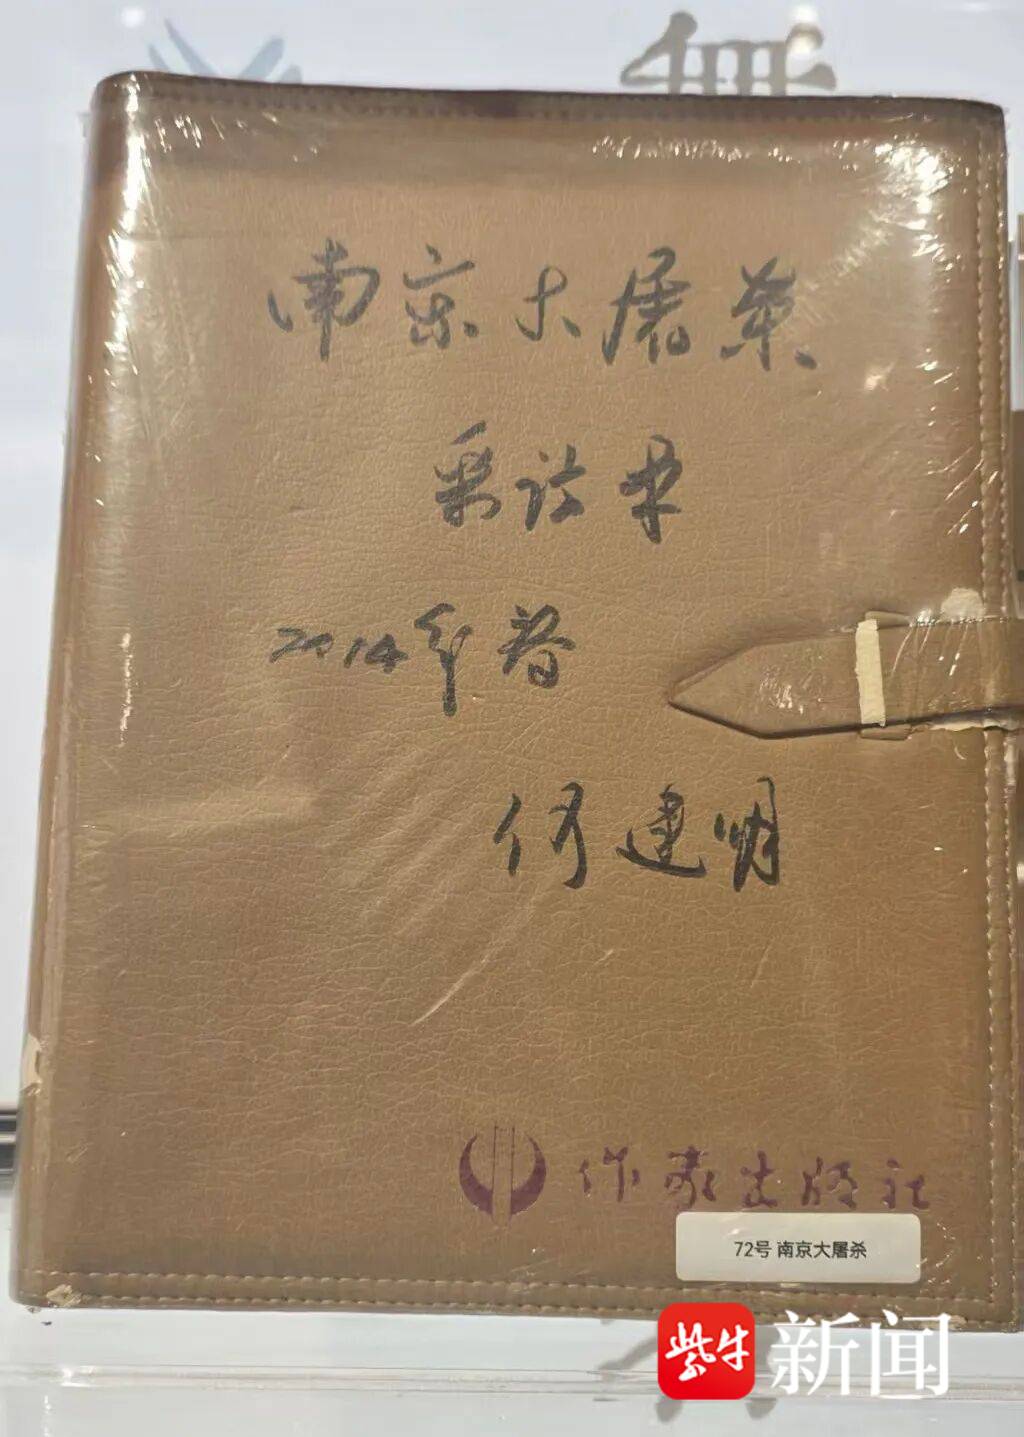 南京大屠杀
采访本
2014年春
何建明
作家出版社
72号 南京大屠杀
紫牛新闻